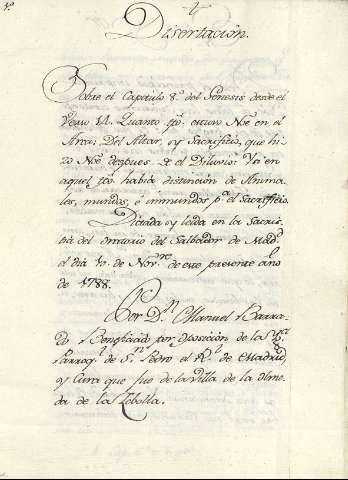 1º
Disertación.
Sobre el Capitulo 8º del Genesis desde el
Verso 14. Quanto tpo. estuvo Noè en el
Arca. Del Altar, y Sacrificio, que hi-
zo Noè despues de el Diluvio: Ya en
aquel tpo habia distincion de Anima-
les, mundos, è inmundos pª el Sacrificio.
Dictada y leida en la Sacris-
tia del oratorio del Salbador de Madd.
el dia 10 de Novre de este presente año
de 1788.
Por Dn Manuel Barra-
do Beneficiado por oposicion de la
Parroql de Sn Pedro el Rl de Madrid
y Cura que fue de la Villa de la Alme-
da de la Zebolla.